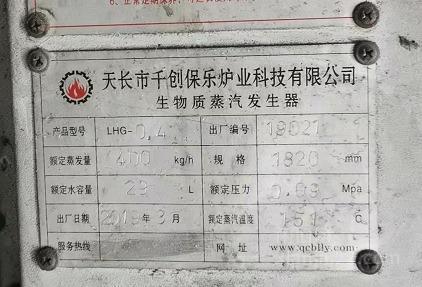 天长市千创保乐炉业科技有限公司
生物质蒸汽发生器
产品型号 LHG-0.4 出厂编号 19021
额定蒸发量 400 kg/h 规格 1820 mm
额定水容量 29 L 额定压力 0.09 Mpa
出厂日期 2019年3月 额定蒸汽温度 151 ℃
服务热线 网址 www.qcblly.com